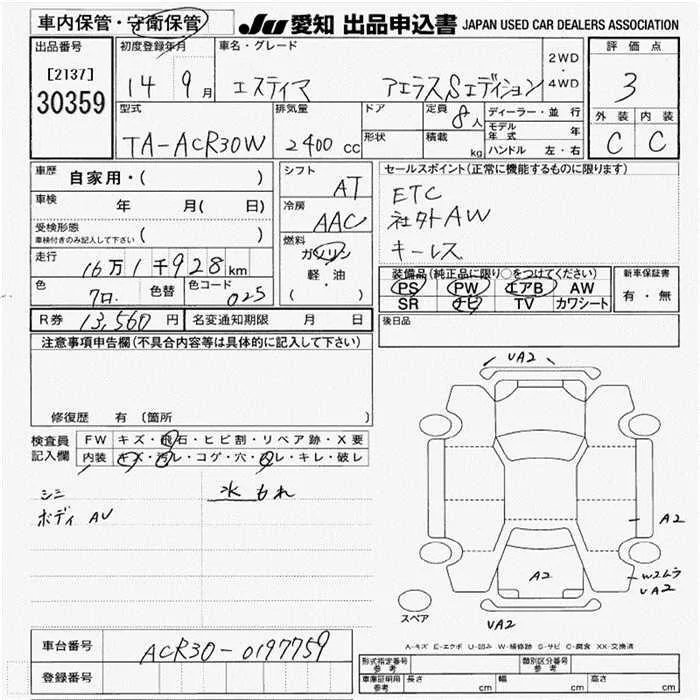 車内保管・守衛保管 JU 愛知 出品申込書 JAPAN USED CAR DEALERS ASSOCIATION
出品番号 初度登録年月 車名・グレード 2WD・4WD 評価点
[2137] 14年 9月 エスティマ アエラスSエディション 3
30359 型式 排気量 ドア 定員 8人 ディーラー・並行 外装 内装
TA-ACR30W 2400cc 形状 積載 kg モデル年式 年 C C
ハンドル 左・右
車歴 自家用・( ) シフト AT セールスポイント(正常に機能するものに限ります)
車検 年 月( 日) 冷房 AAC ETC
受検形態 社外AW
車検付きのみ記入して下さい( ) 燃料 ガソリン キーレス
走行 16万1千928km 軽・油 装備品(純正品に限り○をつけてください) 新車保証書
色 7口. 色替 色コード 025 ( ・ ) PS PW エアB AW 有・無
SR ナビ TV カワシート
R券 13,560円 名変通知期限 月 日 後日品
注意事項申告欄(不具合内容等は具体的に記入して下さい)
修復歴 有 〔箇所
検査員記入欄 FW キズ・飛石・ヒビ割・リペア跡・X要
内装 キズ・汚レ・コゲ・穴・スレ・キレ・破レ
シミ 水もれ
ボディ AU
UA2
A2
A2
W2ムラ
UA2
スペア UA2
A-キズ E-エクボ U-凹み W-補修跡 S-サビ C-腐食 XX-交換済
車台番号 ACR30-0197759 形式指定番号 参考 類別区分番号 参考
登録番号 車庫証明用 参考 長さ cm 幅 cm 高さ cm